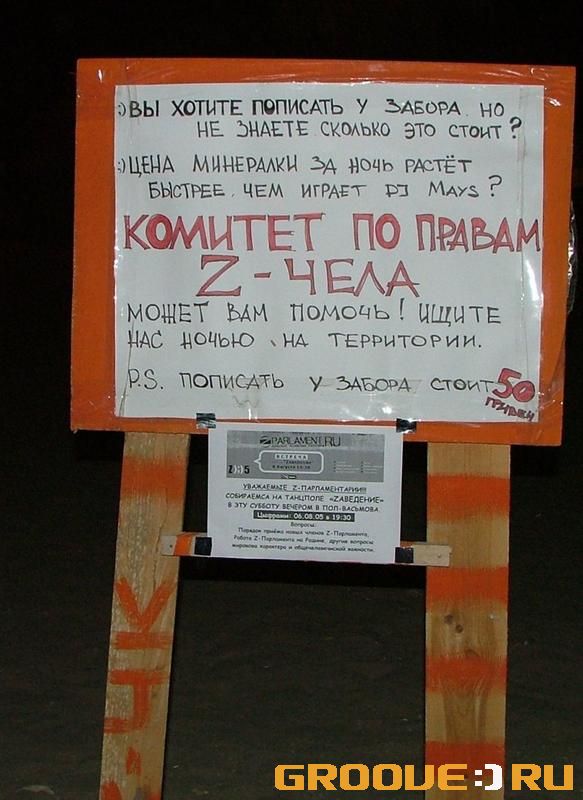 :) ВЫ ХОТИТЕ ПОПИСАТЬ У ЗАБОРА, НО
НЕ ЗНАЕТЕ СКОЛЬКО ЭТО СТОИТ?
:) ЦЕНА МИНЕРАЛКИ ЗА НОЧЬ РАСТЁТ
БЫСТРЕЕ, ЧЕМ ИГРАЕТ DJ MAYS?
КОМИТЕТ ПО ПРАВАМ
Z-ЧЕЛА
МОЖЕТ ВАМ ПОМОЧЬ! ИЩИТЕ
НАС НОЧЬЮ НА ТЕРРИТОРИИ.
P.S. ПОПИСАТЬ У ЗАБОРА СТОИТ 50
ГРИВЕН
PARLAMENT.RU
ВСТРЕЧА
УВАЖАЕМЫЕ Z-ПАРЛАМЕНТАРИИ!!!
СОБИРАЕМСЯ НА ТАНЦПОЛЕ «ZАВЕДЕНИЕ»
В ЭТУ СУББОТУ ВЕЧЕРОМ В ПОЛ-ВАСЬМОВА.
Цыфрами: 06.08.05 в 19:30
Вопросы:
Порядок приёма новых членов Z-Парламента,
Работа Z-Парламента на Родине, другие вопросы
мирового характера и общечеловеческой важности.
GROOVE:)RU